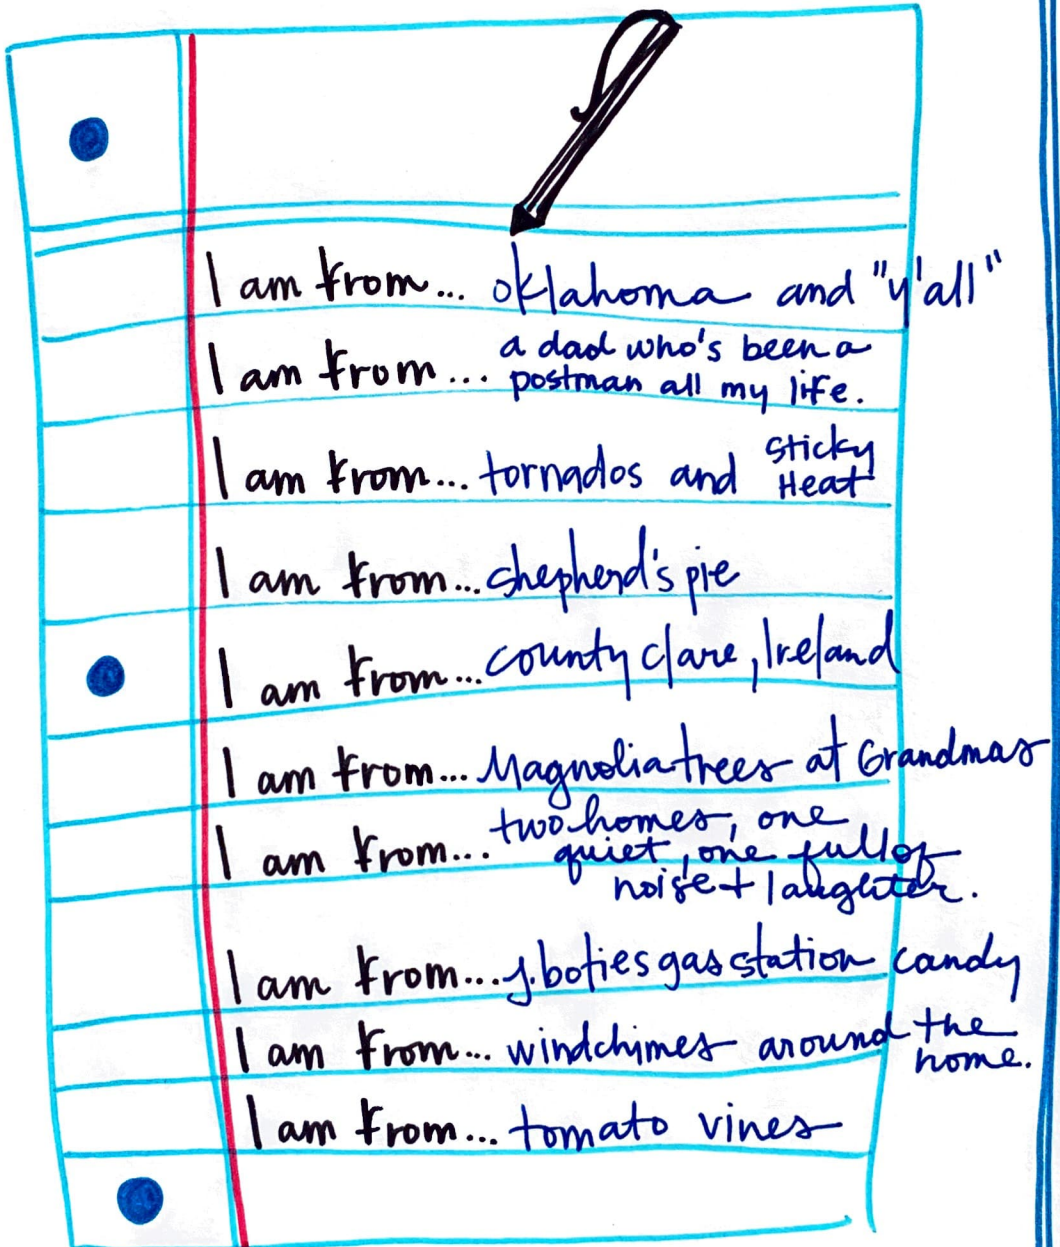 I am from... oklahoma and "y'all"
I am from... a dad who's been a
postman all my life.
I am from... tornados and sticky
Heat
I am from... shepherd's pie
I am from... county clare, Ireland
I am from... Magnolia trees at Grandmas
I am from... two homes, one
quiet, one full of
noise + laughter.
I am from... gas station candy
I am from... windchimes around the
home.
I am from... tomato vines